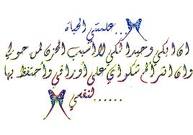 ...علمتني الحياة
ان ابكي وحيدا لكي لا اسبب الحزن لمن حولي
وان اشرح شكواي على أوراقي وأحتفظ بها
لنفسي......